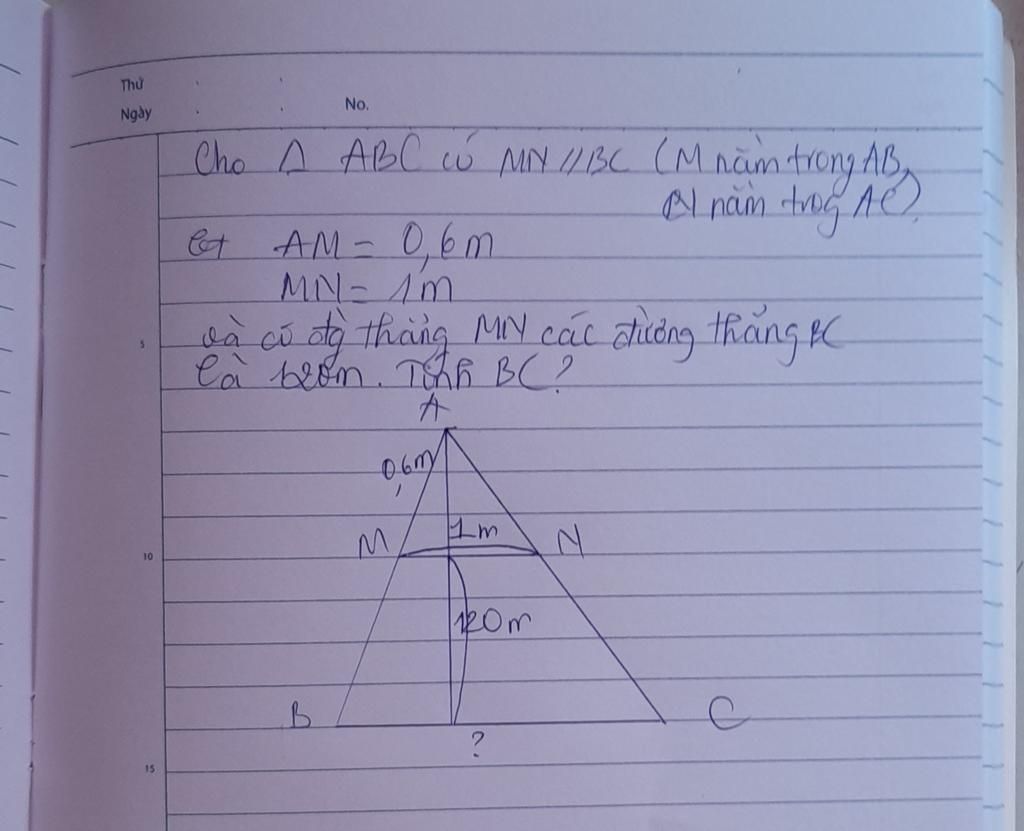 Thứ
Ngày
No.
Cho Δ ABC có MN // BC (M nằm trong AB,
N nằm trog AC).
AM = 0,6m
MN = 1m
5
và có đg thẳng MN các đường thẳng BC
là 120m. Tính BC?
A
0,6m
1m
M
N
10
120m
B
C
?
15